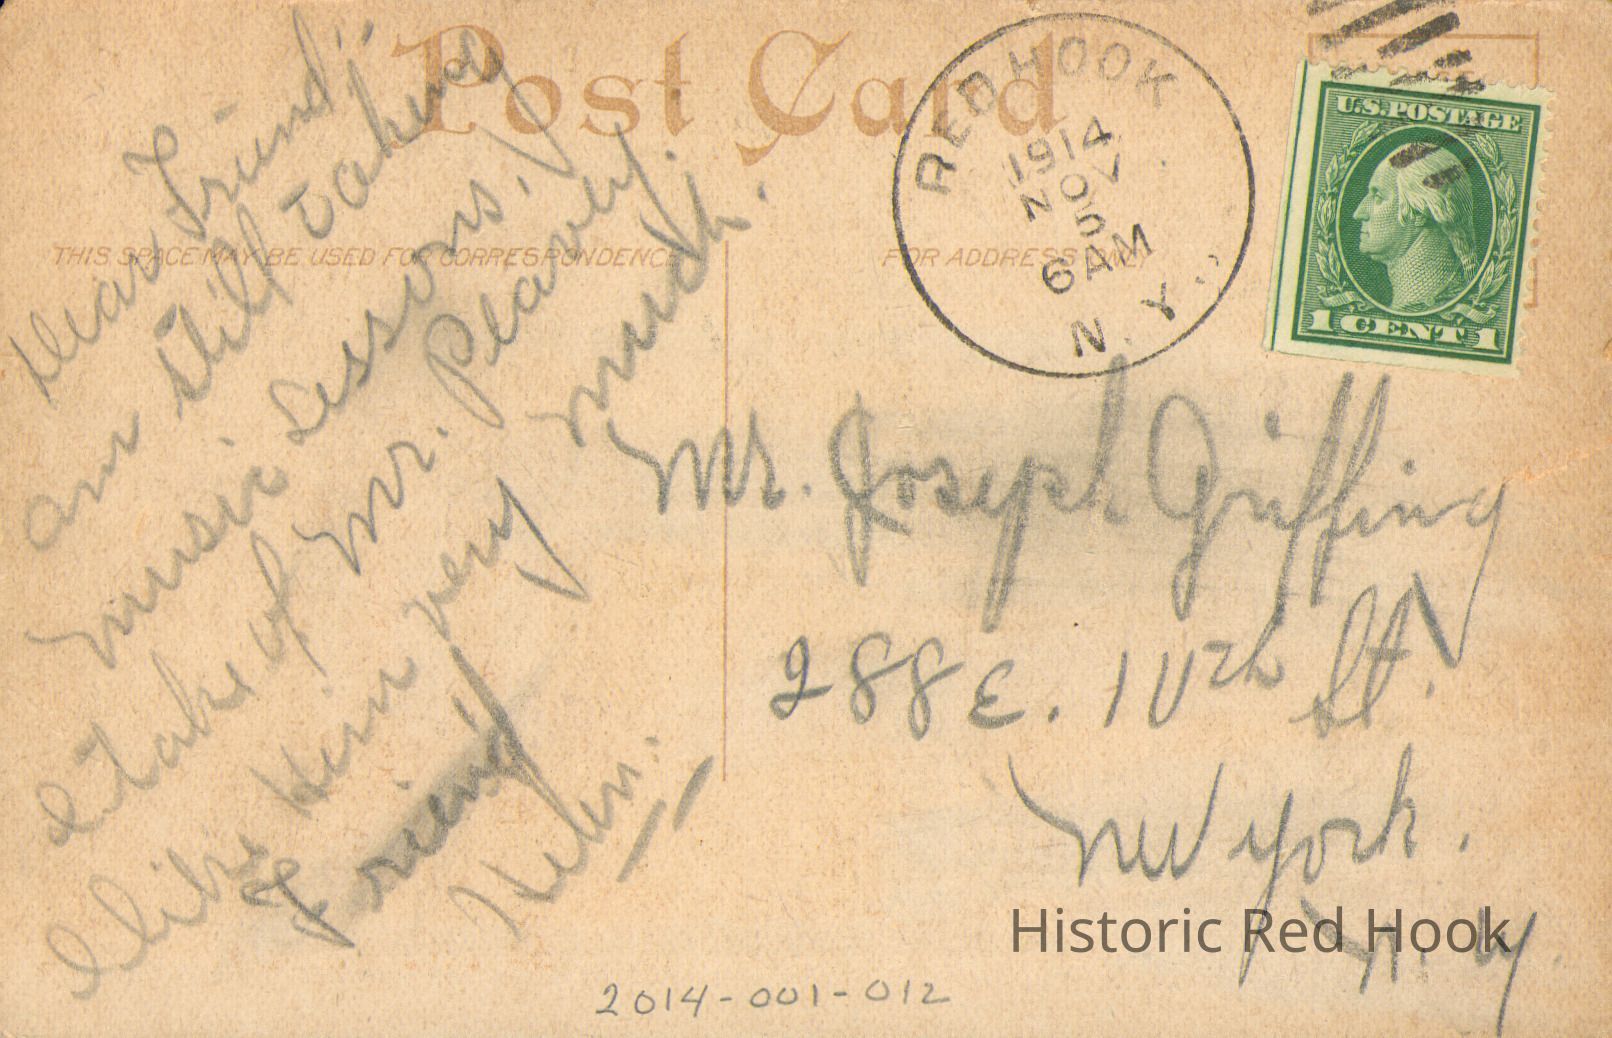 Post Card
THIS SPACE MAY BE USED FOR CORRESPONDENCE
FOR ADDRESS ONLY
RED HOOK
1914
NOV
5
6 AM
N.Y.
U.S. POSTAGE
1 CENT 1
Dear Friend:
am still taking
music Lessons.
I take of Mr. Peavey.
I like Him very much.
Friend
Helen.
Mr. Joseph Griffing
288 E. 10th St.
New York.
N. Y.
Historic Red Hook
2014-001-012